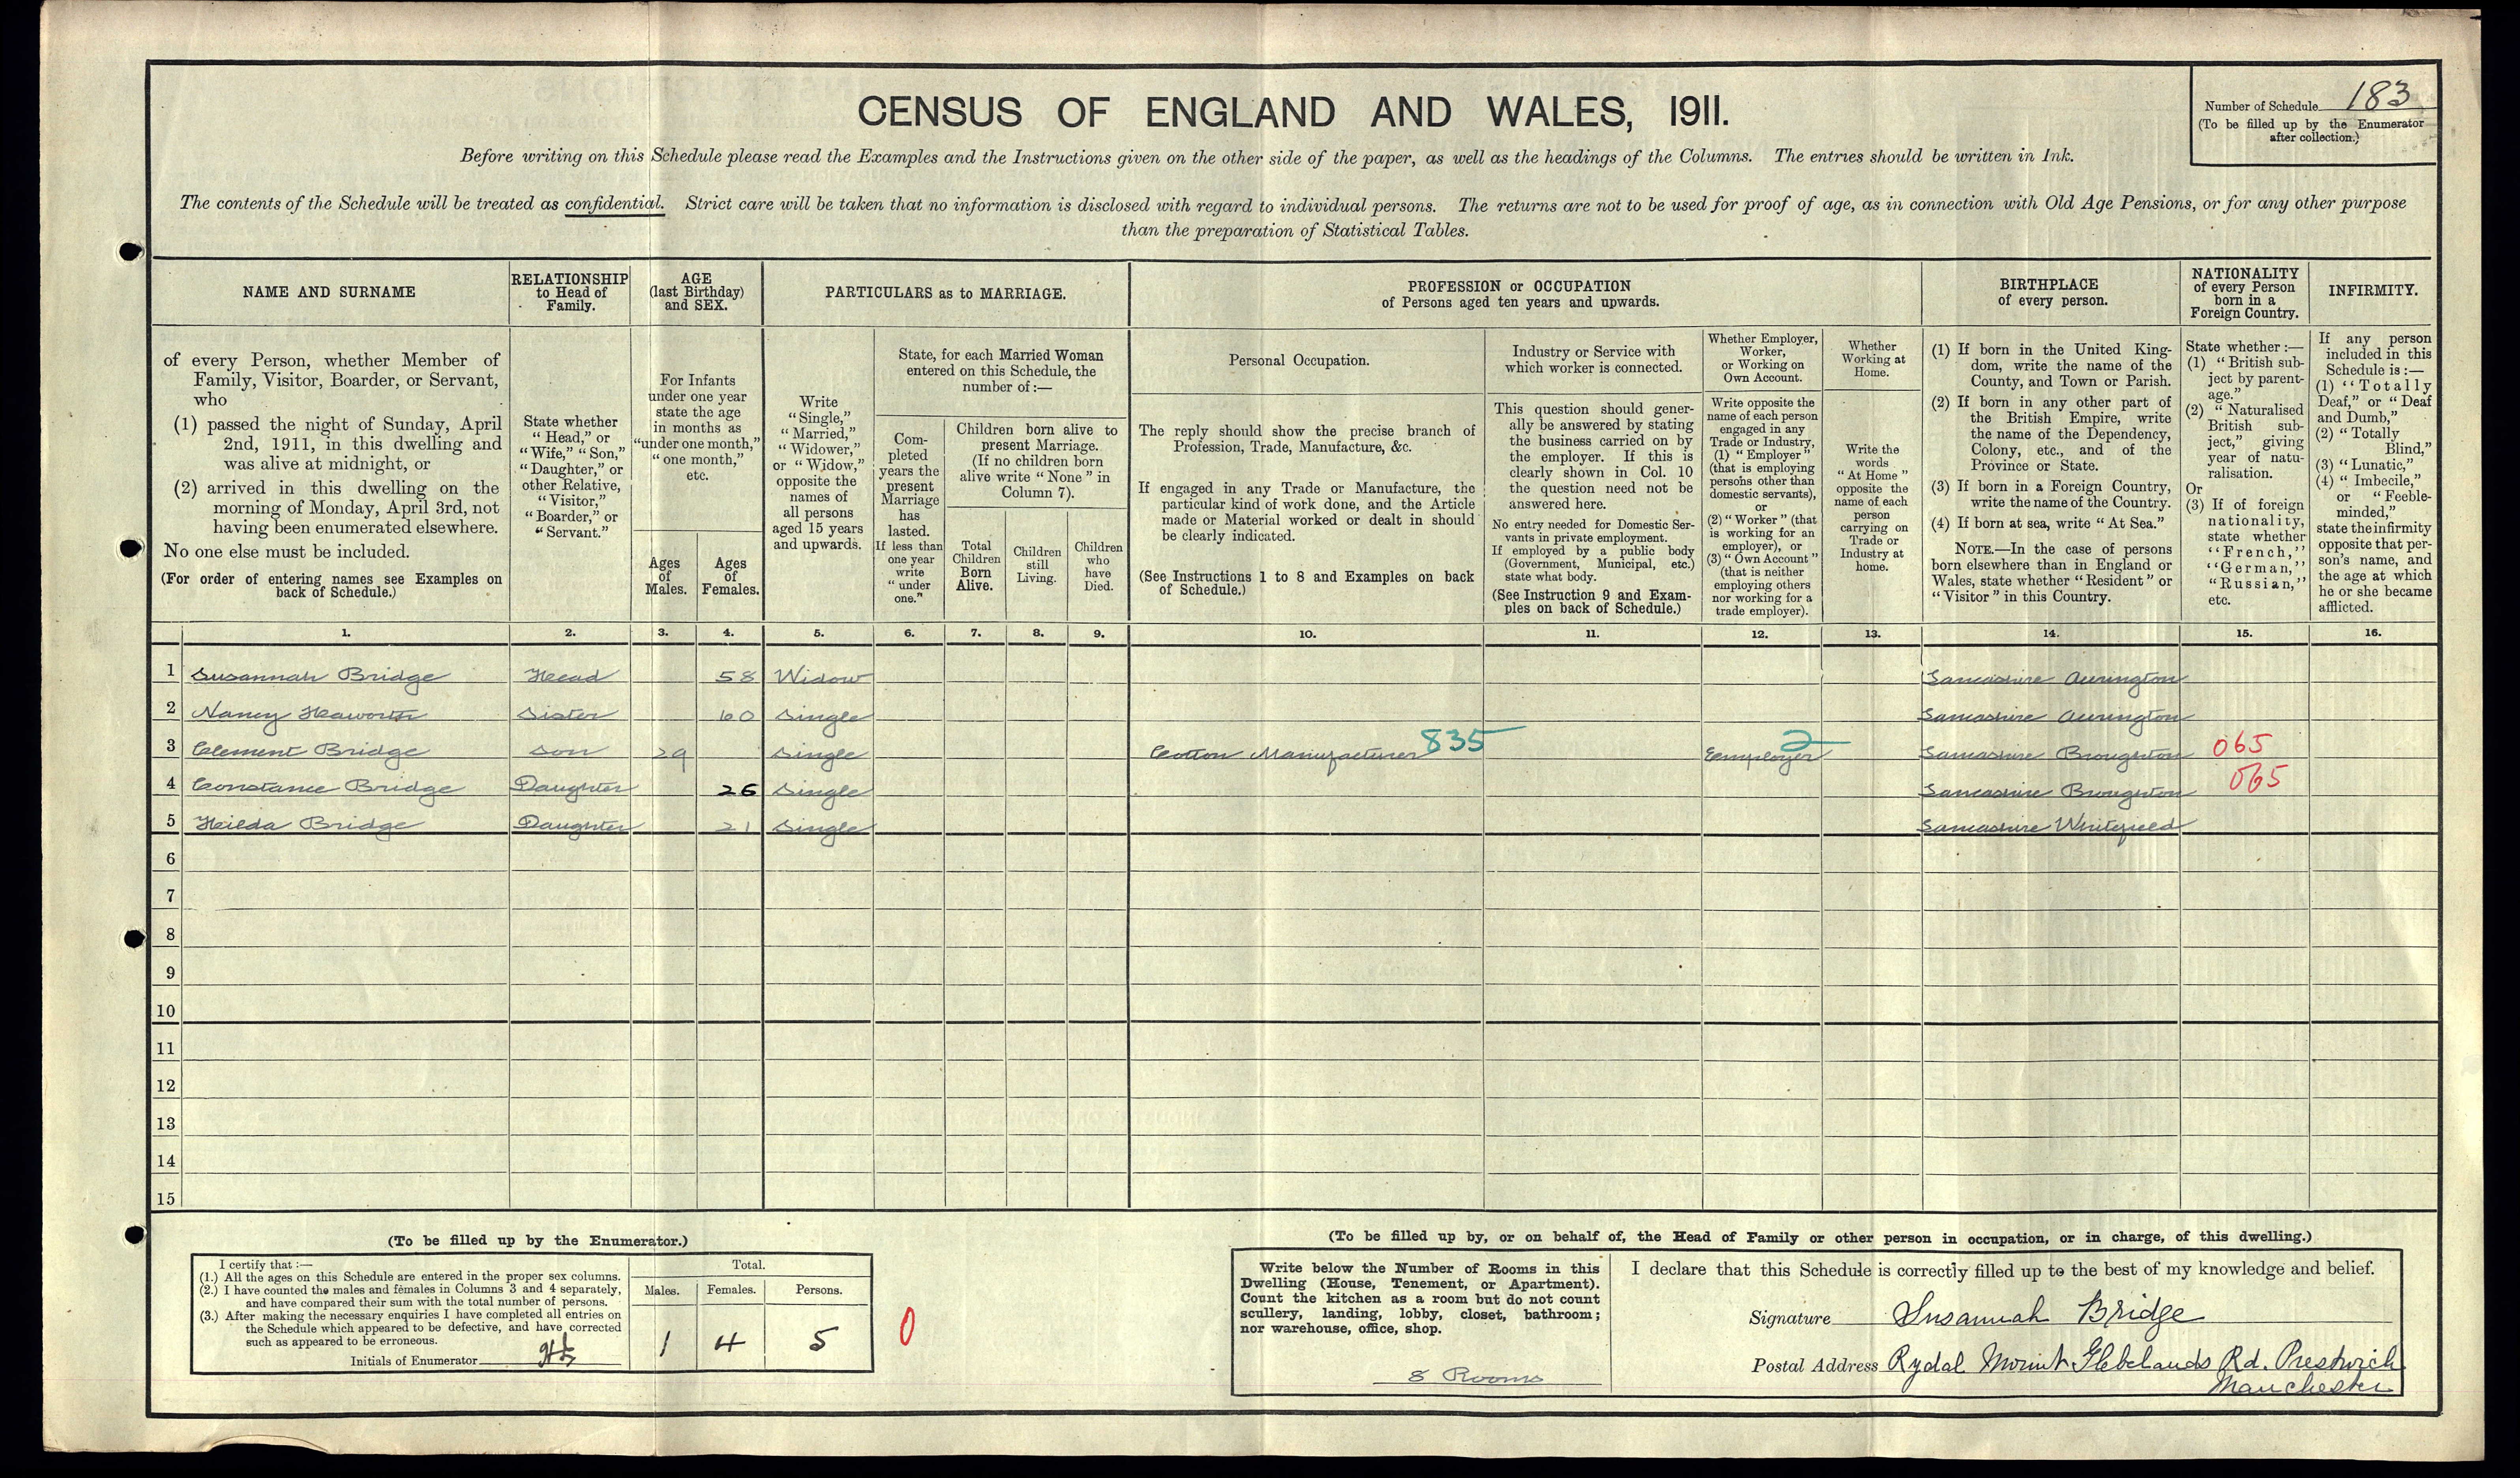 CENSUS OF ENGLAND AND WALES, 1911.
Number of Schedule 183
(To be filled up by the Enumerator
after collection.)
Before writing on this Schedule please read the Examples and the Instructions given on the other side of the paper, as well as the headings of the Columns. The entries should be written in Ink.
The contents of the Schedule will be treated as confidential. Strict care will be taken that no information is disclosed with regard to individual persons. The returns are not to be used for proof of age, as in connection with Old Age Pensions, or for any other purpose
than the preparation of Statistical Tables.
NAME AND SURNAME
RELATIONSHIP
to Head of
Family.
AGE
(last Birthday)
and SEX.
PARTICULARS as to MARRIAGE.
PROFESSION or OCCUPATION
of Persons aged ten years and upwards.
BIRTHPLACE
of every person.
NATIONALITY
of every Person
born in a
Foreign Country.
INFIRMITY.
of every Person, whether Member of
Family, Visitor, Boarder, or Servant,
who
(1) passed the night of Sunday, April
2nd, 1911, in this dwelling and
was alive at midnight, or
(2) arrived in this dwelling on the
morning of Monday, April 3rd, not
having been enumerated elsewhere.
No one else must be included.
(For order of entering names see Examples on
back of Schedule.)
State whether
"Head," or
"Wife," "Son,"
"Daughter," or
other Relative,
"Visitor,"
"Boarder," or
"Servant."
For Infants
under one year
state the age
in months as
"under one month,"
"one month,"
etc.
Ages
of
Males.
Ages
of
Females.
Write
"Single,"
"Married,"
"Widower,"
or "Widow,"
opposite the
names of
all persons
aged 15 years
and upwards.
State, for each Married Woman
entered on this Schedule, the
number of:—
Com-
pleted
years the
present
Marriage
has
lasted.
If less than
one year
write
"under
one."
Children born alive to
present Marriage.
(If no children born
alive write "None" in
Column 7).
Total
Children
Born
Alive.
Children
still
Living.
Children
who
have
Died.
Personal Occupation.
The reply should show the precise branch of
Profession, Trade, Manufacture, &c.
If engaged in any Trade or Manufacture, the
particular kind of work done, and the Article
made or Material worked or dealt in should
be clearly indicated.
(See Instructions 1 to 8 and Examples on back
of Schedule.)
Industry or Service with
which worker is connected.
This question should gener-
ally be answered by stating
the business carried on by
the employer. If this is
clearly shown in Col. 10
the question need not be
answered here.
No entry needed for Domestic Ser-
vants in private employment.
If employed by a public body
(Government, Municipal, etc.)
state what body.
(See Instruction 9 and Exam-
ples on back of Schedule.)
Whether Employer,
Worker,
or Working on
Own Account.
Write opposite the
name of each person
engaged in any
Trade or Industry,
(1) "Employer"
(that is employing
persons other than
domestic servants),
or
(2) "Worker" (that
is working for an
employer), or
(3) "Own Account"
(that is neither
employing others
nor working for a
trade employer).
Whether
Working at
Home.
Write the
words
"At Home"
opposite the
name of each
person
carrying on
Trade or
Industry at
home.
(1) If born in the United King-
dom, write the name of the
County, and Town or Parish.
(2) If born in any other part of
the British Empire, write
the name of the Dependency,
Colony, etc., and of the
Province or State.
(3) If born in a Foreign Country,
write the name of the Country.
(4) If born at sea, write "At Sea."
NOTE.—In the case of persons
born elsewhere than in England or
Wales, state whether "Resident" or
"Visitor" in this Country.
State whether:—
(1) "British sub-
ject by parent-
age."
(2) "Naturalised
British sub-
ject," giving
year of natu-
ralisation.
Or
(3) If of foreign
nationality,
state whether
"French,"
"German,"
"Russian,"
etc.
If any person
included in this
Schedule is:—
(1) "Totally
Deaf," or "Deaf
and Dumb,"
(2) "Totally
Blind,"
(3) "Lunatic,"
(4) "Imbecile,"
or "Feeble-
minded,"
state the infirmity
opposite that per-
son's name, and
the age at which
he or she became
afflicted.
1. 2. 3. 4. 5. 6. 7. 8. 9. 10. 11. 12. 13. 14. 15. 16.
1 Susannah Bridge Head 58 Widow Lancashire Accrington
2 Nancy Haworth Sister 60 Single Lancashire Accrington
3 Clement Bridge Son 29 Single Cotton Manufacturer 835 Employer 2 Lancashire Broughton 065
4 Constance Bridge Daughter 26 Single Lancashire Broughton 065
5 Hilda Bridge Daughter 21 Single Lancashire Whitefield
6
7
8
9
10
11
12
13
14
15
(To be filled up by the Enumerator.)
I certify that:—
(1.) All the ages on this Schedule are entered in the proper sex columns.
(2.) I have counted the males and females in Columns 3 and 4 separately,
and have compared their sum with the total number of persons.
(3.) After making the necessary enquiries I have completed all entries on
the Schedule which appeared to be defective, and have corrected
such as appeared to be erroneous.
Initials of Enumerator
Total.
Males. Females. Persons.
1 4 5
0
(To be filled up by, or on behalf of, the Head of Family or other person in occupation, or in charge, of this dwelling.)
Write below the Number of Rooms in this
Dwelling (House, Tenement, or Apartment).
Count the kitchen as a room but do not count
scullery, landing, lobby, closet, bathroom;
nor warehouse, office, shop.
8 Rooms
I declare that this Schedule is correctly filled up to the best of my knowledge and belief.
Signature Susannah Bridge
Postal Address Rydal Mount Glebelands Rd. Prestwich
Manchester